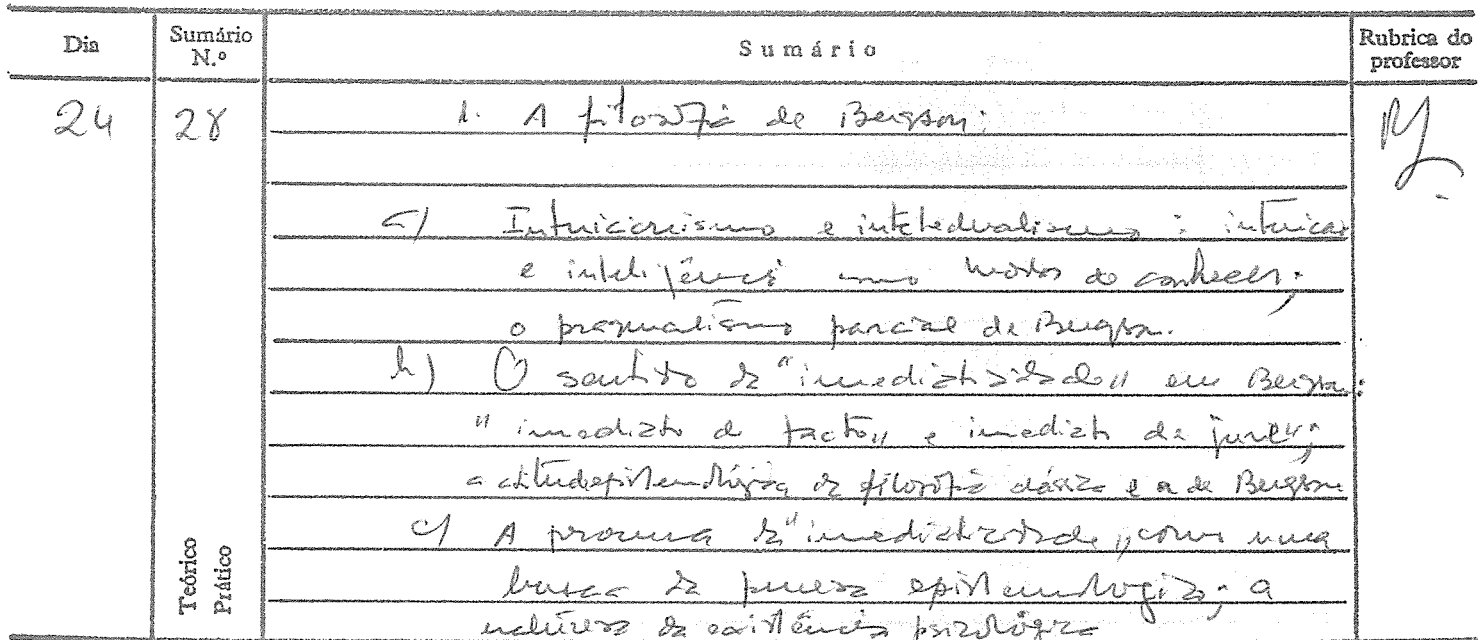 Dia Sumário N.º Sumário Rubrica do professor
24 28 1. A filosofia de Bergson:
a) Intuicionismo e intelectualismo: intuição
e inteligência como modos de conhecer;
o pragmatismo parcial de Bergson.
b) O sentido da "imediatividade" em Bergson:
"imediato de facto" e imediato de jure";
a atitude epistemológica da filosofia clássica e a de Bergson
c) A procura da "imediatividade" como uma
busca da pureza epistemológica; a
natureza da existência psicológica
Teórico
Prático